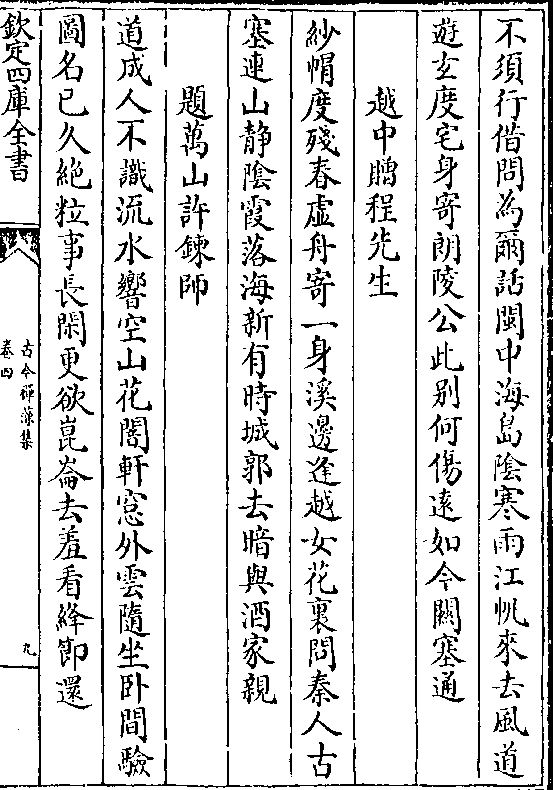 不須行借問為爾話閩中海島陰寒雨江帆來去風道
遊玄度宅身寄朗陵公此别何傷遠如今關塞通
越中贈程先生
紗帽度殘春虚舟寄一身溪邊逢越女花裏問秦人古
塞連山静陰霞落海新有時城郭去暗與酒家親
題萬山許鍊師
道成人不識流水響空山花閣軒窓外雲隨坐卧間驗
圖名已久絶粒事長閑更欲崑崙去羞看絳節還
欽定四庫全書
古今禪藻集
卷四
九